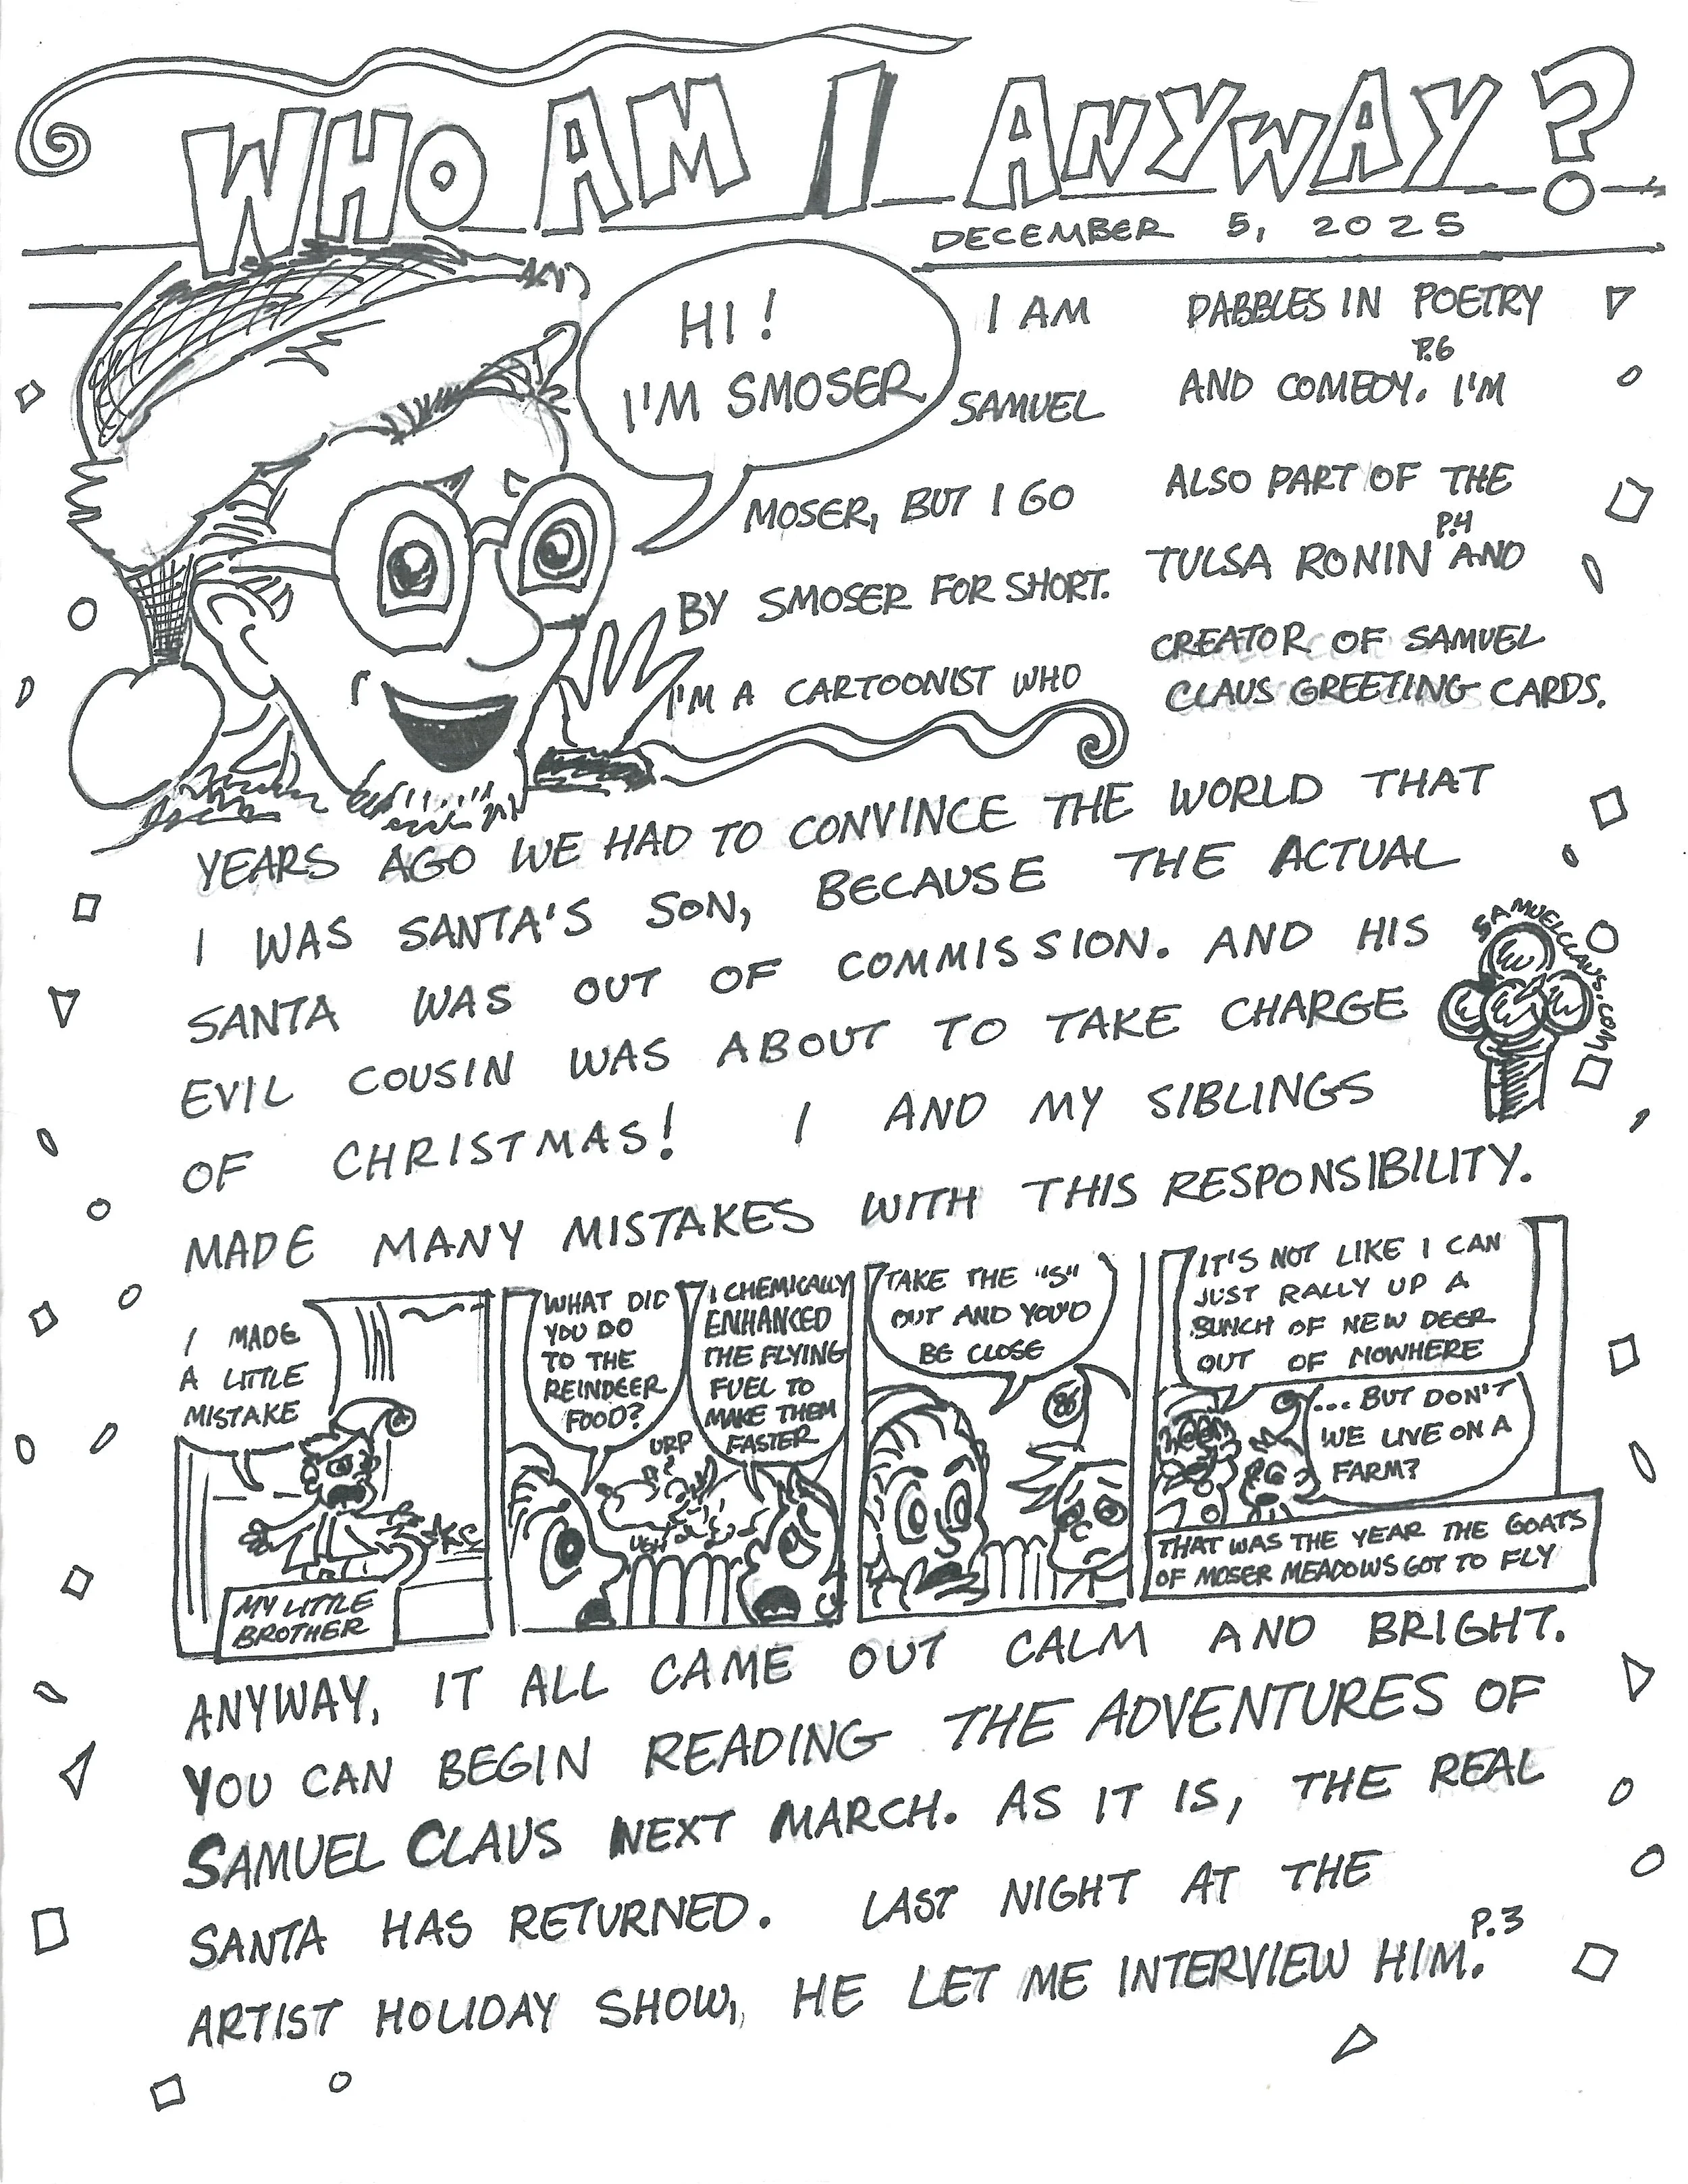 WHO AM I ANYWAY?
DECEMBER 5, 2025
HI!
I'M SMOSER
I AM
SAMUEL
MOSER, BUT I GO
BY SMOSER FOR SHORT.
I'M A CARTOONIST WHO
DABBLES IN POETRY
P.6
AND COMEDY. I'M
ALSO PART OF THE
P.4
TULSA RONIN AND
CREATOR OF SAMUEL
CLAUS GREETING CARDS.
YEARS AGO WE HAD TO CONVINCE THE WORLD THAT
I WAS SANTA'S SON, BECAUSE THE ACTUAL
SANTA WAS OUT OF COMMISSION. AND HIS
EVIL COUSIN WAS ABOUT TO TAKE CHARGE
OF CHRISTMAS! I AND MY SIBLINGS
MADE MANY MISTAKES WITH THIS RESPONSIBILITY.
SAMUELCLAUS.COM
I MADE
A LITTLE
MISTAKE
MY LITTLE
BROTHER
WHAT DID
YOU DO
TO THE
REINDEER
FOOD?
I CHEMICALLY
ENHANCED
THE FLYING
FUEL TO
MAKE THEM
FASTER
URP
UGH
TAKE THE "S"
OUT AND YOU'D
BE CLOSE
IT'S NOT LIKE I CAN
JUST RALLY UP A
BUNCH OF NEW DEER
OUT OF NOWHERE
... BUT DON'T
WE LIVE ON A
FARM?
THAT WAS THE YEAR THE GOATS
OF MOSER MEADOWS GOT TO FLY
ANYWAY, IT ALL CAME OUT CALM AND BRIGHT.
YOU CAN BEGIN READING THE ADVENTURES OF
SAMUEL CLAUS NEXT MARCH. AS IT IS, THE REAL
SANTA HAS RETURNED. LAST NIGHT AT THE
ARTIST HOLIDAY SHOW, HE LET ME INTERVIEW HIM.
P.3